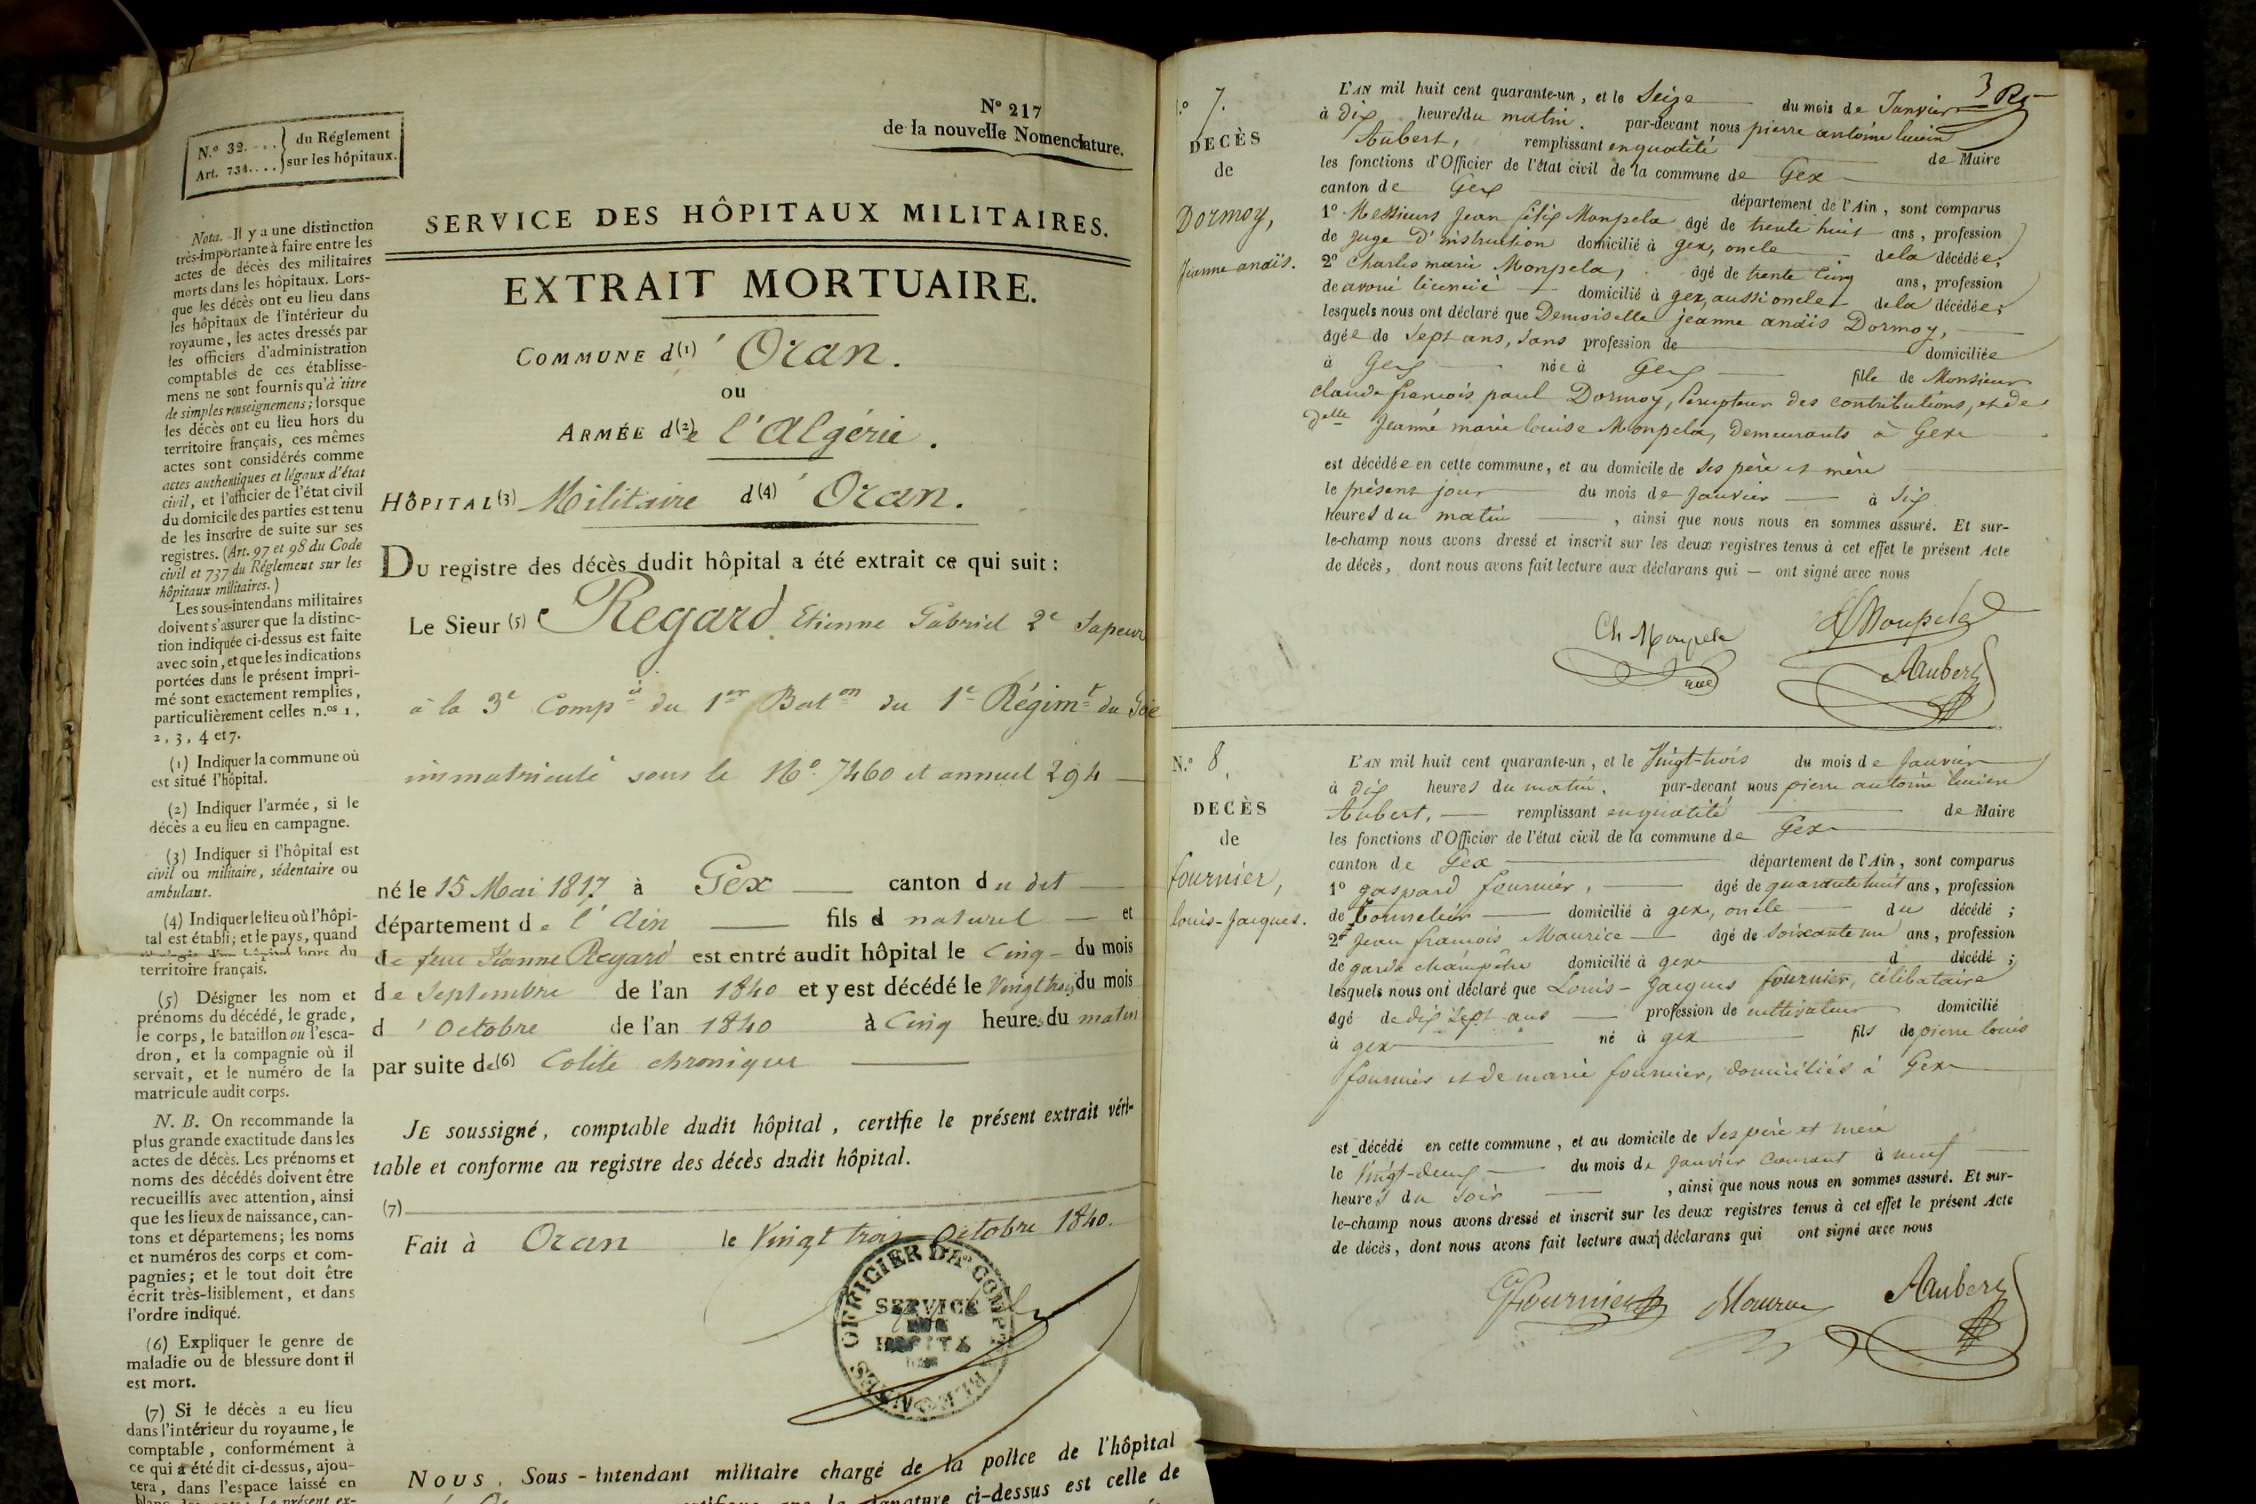 N.º 32. . . . } du Réglement
Art. 734. . . . } sur les hôpitaux.
Nº 217
de la nouvelle Nomenclature.
Nota. Il y a une distinction
très-importante à faire entre les
actes de décès des militaires
morts dans les hôpitaux. Lors-
que les décès ont eu lieu dans
les hôpitaux de l'intérieur du
royaume, les actes dressés par
les officiers d'administration
comptables de ces établisse-
mens ne sont fournis qu'à titre
de simples renseignemens; lorsque
les décès ont eu lieu hors du
territoire français, ces mêmes
actes sont considérés comme
actes authentiques et légaux d'état
civil, et l'officier de l'état civil
du domicile des parties est tenu
de les inscrire de suite sur ses
registres. (Art. 97 et 98 du Code
civil et 737 du Réglement sur les
hôpitaux militaires.)
Les sous-intendans militaires
doivent s'assurer que la distinc-
tion indiquée ci-dessus est faite
avec soin, et que les indications
portées dans le présent impri-
mé sont exactement remplies,
particulièrement celles n.os 1,
2, 3, 4 et 7.
(1) Indiquer la commune où
est situé l'hôpital.
(2) Indiquer l'armée, si le
décès a eu lieu en campagne.
(3) Indiquer si l'hôpital est
civil ou militaire, sédentaire ou
ambulant.
(4) Indiquer le lieu où l'hôpi-
tal est établi; et le pays, quand
hors du
territoire français.
(5) Désigner les nom et
prénoms du décédé, le grade,
le corps, le bataillon ou l'esca-
dron, et la compagnie où il
servait, et le numéro de la
matricule audit corps.
N. B. On recommande la
plus grande exactitude dans les
actes de décès. Les prénoms et
noms des décédés doivent être
recueillis avec attention, ainsi
que les lieux de naissance, can-
tons et départemens; les noms
et numéros des corps et com-
pagnies; et le tout doit être
écrit très-lisiblement, et dans
l'ordre indiqué.
(6) Expliquer le genre de
maladie ou de blessure dont il
est mort.
(7) Si le décès a eu lieu
dans l'intérieur du royaume, le
comptable, conformément à
ce qui a été dit ci-dessus, ajou-
tera, dans l'espace laissé en
SERVICE DES HÔPITAUX MILITAIRES.
EXTRAIT MORTUAIRE.
COMMUNE d(1)' Oran.
ou
ARMÉE d(2)e l'Algérie.
HÔPITAL(3) Militaire d(4)' Oran.
DU registre des décès dudit hôpital a été extrait ce qui suit :
Le Sieur (5) Regard Etienne Gabriel 2e Sapeur
à la 3e Compie du 1er Baton du 1e Régimt du Génie
immatriculé sous le Nº 7460 et annuel 294
né le 15 Mai 1817 à Gex canton du dit
département de l'Ain fils d naturel et
de feue Jeanne Regard est entré audit hôpital le Cinq du mois
de Septembre de l'an 1840 et y est décédé le Vingt trois du mois
d'Octobre de l'an 1840 à Cinq heures du matin
par suite de(6) Colite chronique
JE soussigné, comptable dudit hôpital, certifie le présent extrait véri-
table et conforme au registre des décès dudit hôpital.
(7)
Fait à Oran le Vingt trois Octobre 1840.
OFFICIER D'ADon COMPTABLE
SERVICE
DES
HOPITX
NOUS, Sous-intendant militaire chargé de la police de l'hôpital
signature ci-dessus est celle de
3 Rg
N.º 7.
DECÈS
de
Dormoy,
Jeanne anaïs.
L'AN mil huit cent quarante-un, et le Seize du mois de Janvier
à dix heures du matin. par-devant nous pierre antoine lucien
Aubert, remplissant en qualité de Maire
les fonctions d'Officier de l'état civil de la commune de Gex
canton de Gex département de l'Ain, sont comparus
1º Messieurs Jean félix Monpela âgé de trente huit ans, profession
de juge d'instruction domicilié à gex, oncle de la décédée;
2º Charles marie Monpela, âgé de trente cinq ans, profession
de avoué licencié domicilié à gex, aussi oncle de la décédée;
lesquels nous ont déclaré que Demoiselle jeanne anaïs Dormoy,
âgée de Sept ans, sans profession de domiciliée
à Gex née à Gex fille de Monsieur
claude françois paul Dormoy, percepteur des contributions, et de
Delle Jeanne marie louise Monpela, demeurants à Gex
est décédée en cette commune, et au domicile de ses père et mère
le présent jour du mois de Janvier à six
heures du matin, ainsi que nous nous en sommes assuré. Et sur-
le-champ nous avons dressé et inscrit sur les deux registres tenus à cet effet le présent Acte
de décès, dont nous avons fait lecture aux déclarans qui — ont signé avec nous
Ch Monpela
Monpela
avué
Aubert
N.º 8.
DECÈS
de
fournier,
louis-Jacques.
L'AN mil huit cent quarante-un, et le Vingt-trois du mois de Janvier
à dix heures du matin. par-devant nous pierre antoine lucien
Aubert, remplissant en qualité de Maire
les fonctions d'Officier de l'état civil de la commune de Gex
canton de Gex département de l'Ain, sont comparus
1º gaspard fournier, âgé de quarante huit ans, profession
de Tonnelier domicilié à gex, oncle du décédé;
2º Jean françois Maurice âgé de soixante un ans, profession
de garde champêtre domicilié à gex d décédé;
lesquels nous ont déclaré que Louis-Jacques fournier, célibataire
âgé de dix sept ans profession de cultivateur domicilié
à gex né à gex fils de pierre louis
fournier et de marie fournier, domiciliés à Gex
est décédé en cette commune, et au domicile de ses père et mère
le Vingt-deux du mois de Janvier courant à neuf
heures du soir, ainsi que nous nous en sommes assuré. Et sur-
le-champ nous avons dressé et inscrit sur les deux registres tenus à cet effet le présent Acte
de décès, dont nous avons fait lecture aux déclarans qui ont signé avec nous
G Fournier Maurice Aubert